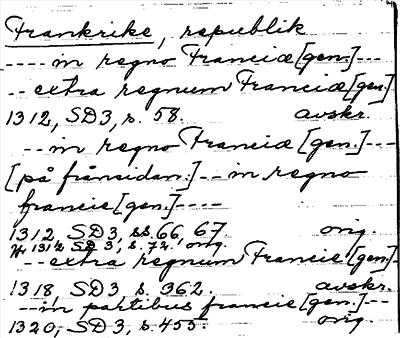 Frankrike, republik
---- in regno Franciæ [gen.] ---
-- extra regnum Franciæ [gen]
1312, SD3, s. 58. avskr.
-- in regno Franciæ [gen.] ---
[på frånsidan:] -- in regno
francie [gen.] ----
1312, SD3, ss. 66, 67. orig.
Nr 1312 SD 3, s. 72. orig.
-- extra regnum Francie [gen.] -
1318, SD3, s. 362. avskr.
-- in partibus francie [gen.] --
1320, SD3, s. 455. orig.